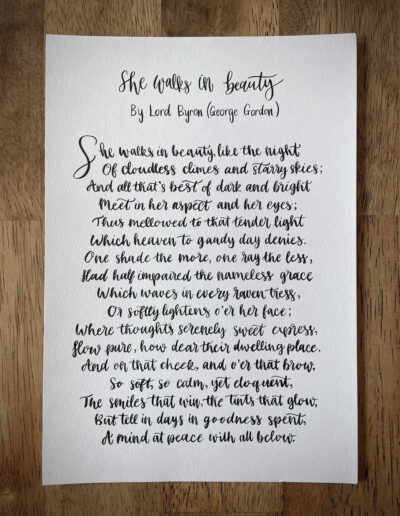 She walks in beauty
By Lord Byron (George Gordon)
She walks in beauty, like the night
Of cloudless climes and starry skies;
And all that's best of dark and bright
Meet in her aspect and her eyes;
Thus mellowed to that tender light
Which heaven to gaudy day denies.
One shade the more, one ray the less,
Had half impaired the nameless grace
Which waves in every raven tress,
Or softly lightens o'er her face;
Where thoughts serenely sweet express,
How pure, how dear their dwelling place.
And on that cheek, and o'er that brow,
So soft, so calm, yet eloquent,
The smiles that win, the tints that glow,
But tell in days in goodness spent,
A mind at peace with all below.